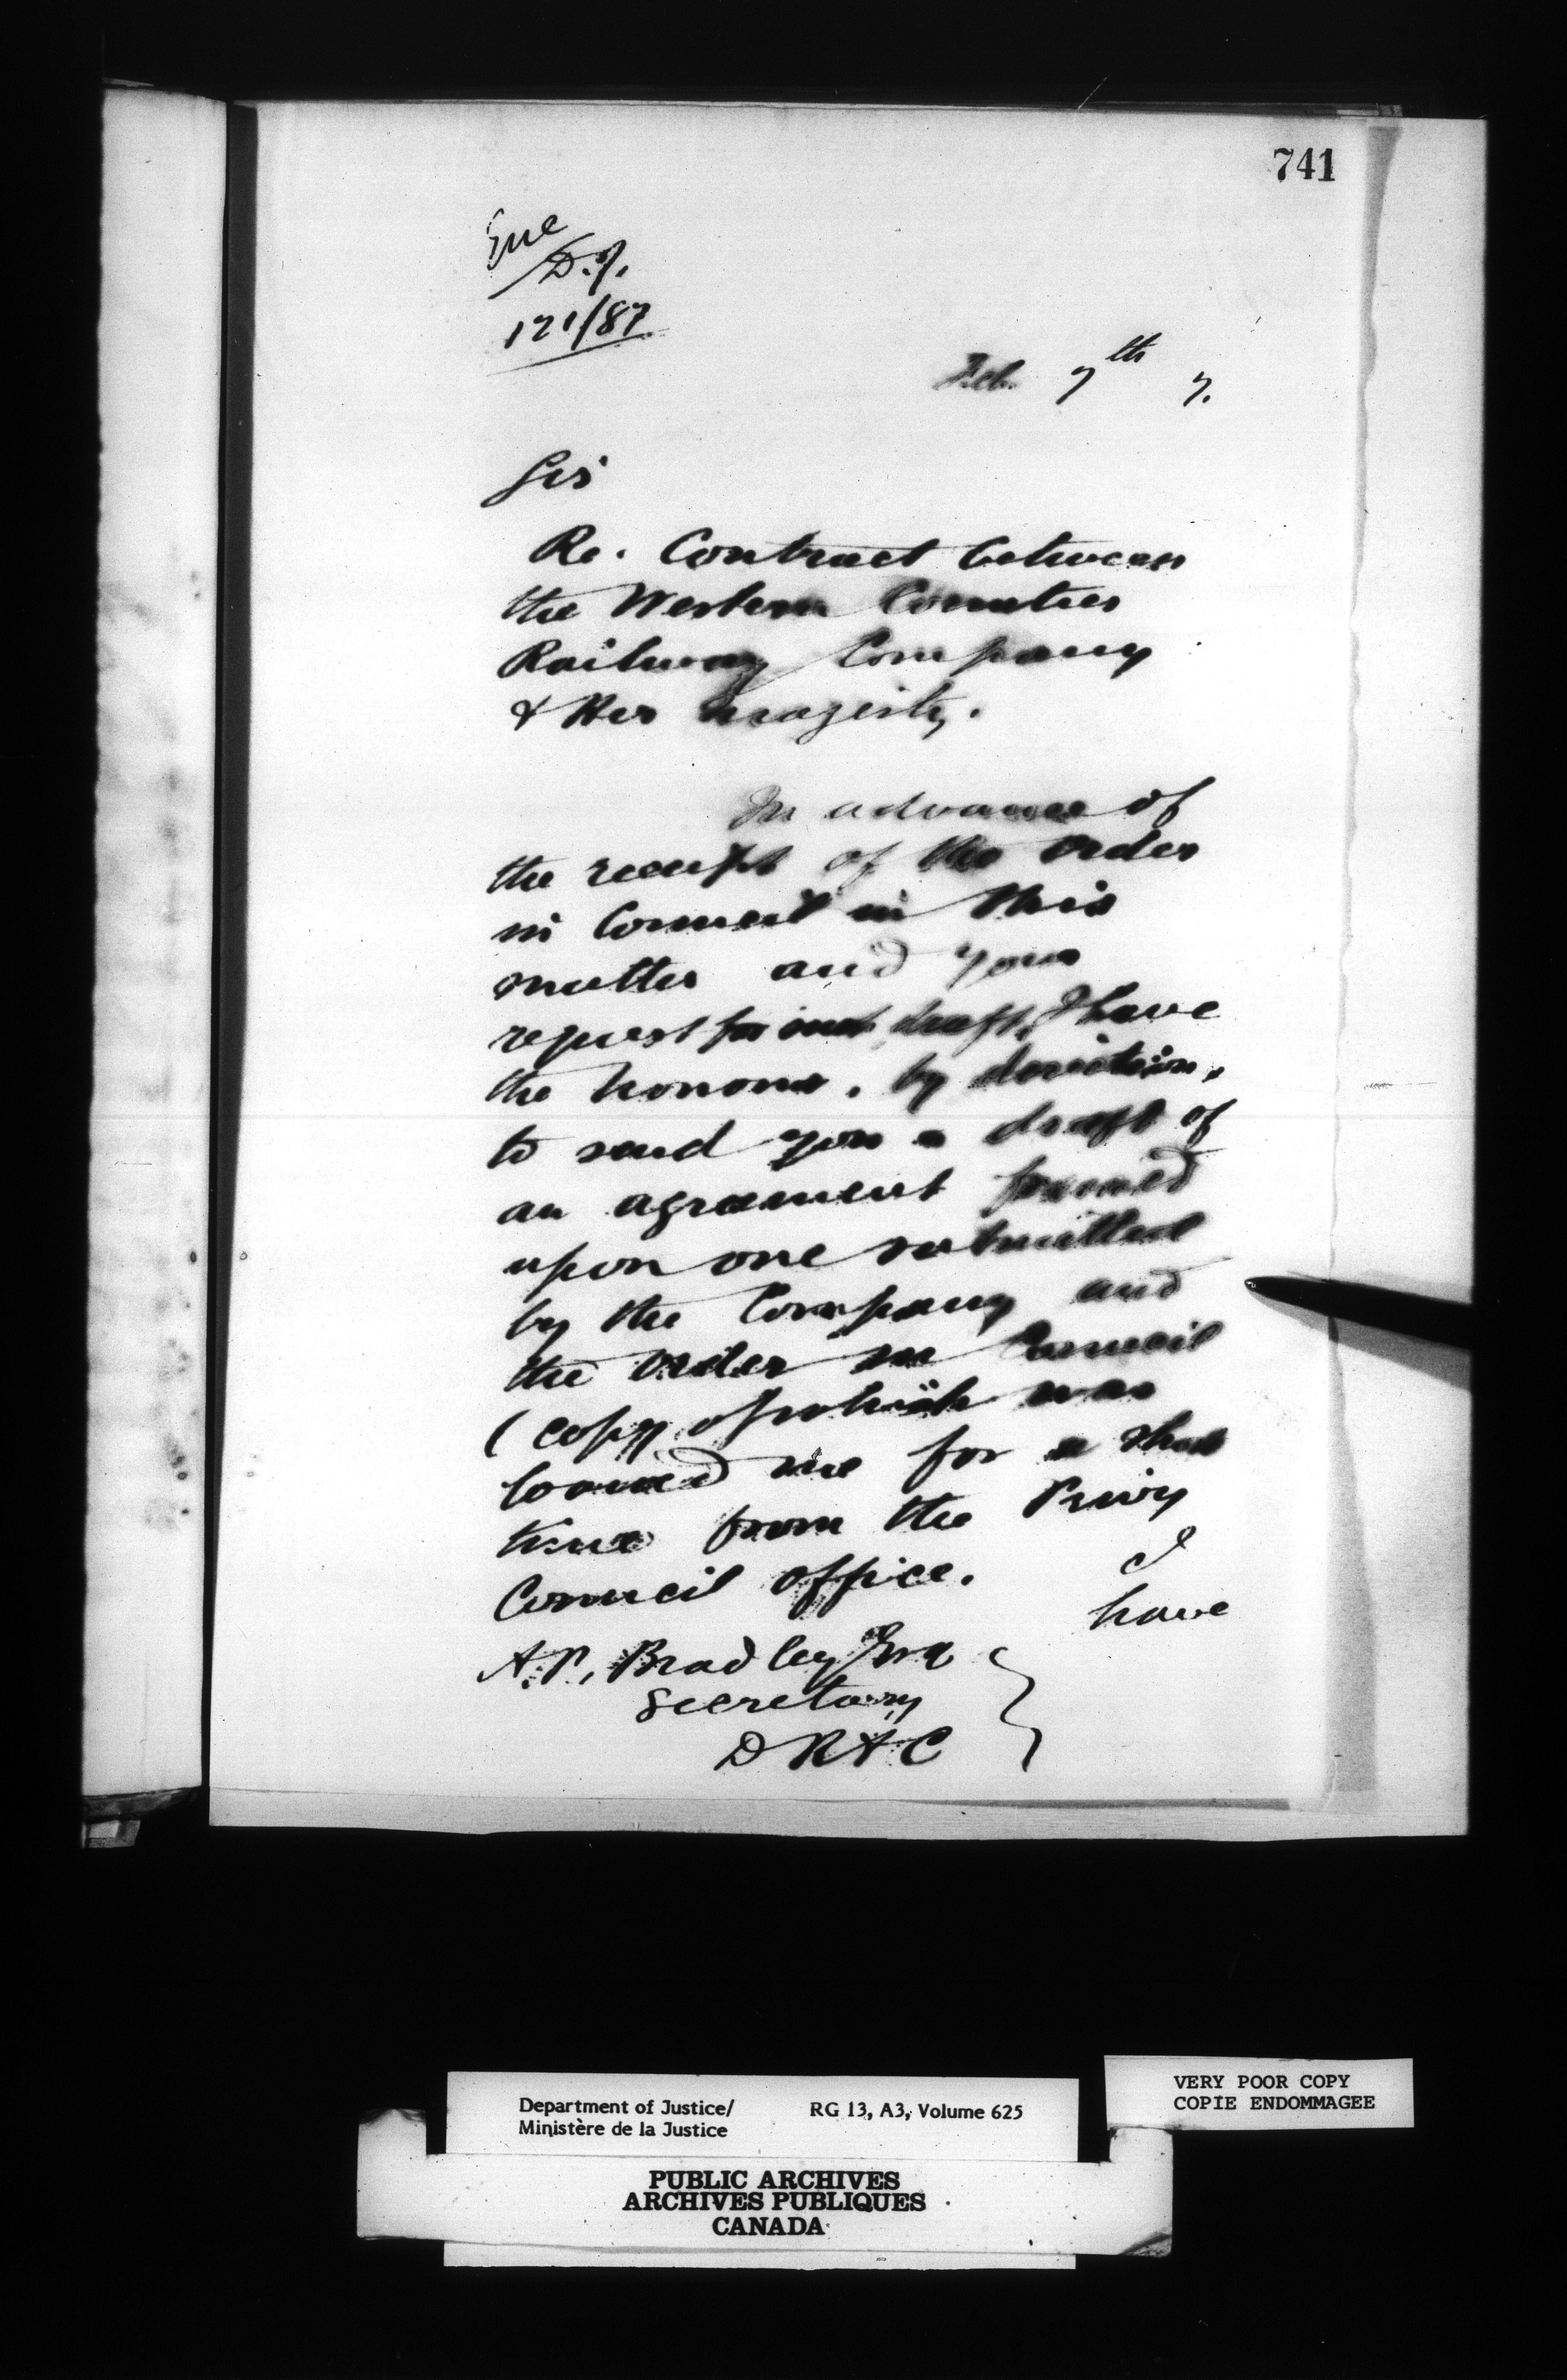 741
Enc
D.J.
121/87
Feb 7th 7.
Sir
Re. Contract between
the Western Counties
Railway Company
& Her Majesty.
In advance of
the receipt of the Order
in Council in this
matter and your
request for draft, I have
the honour, by direction,
to send you a draft of
an agreement framed
upon one submitted
by the Company and
the Order in Council
(copy of which was
loaned me for a short
time from the Privy
Council Office.
I
have
A.P. Bradley Esq
Secretary
D R & C
VERY POOR COPY
COPIE ENDOMMAGEE
Department of Justice/ RG 13, A3, Volume 625
Ministère de la Justice
PUBLIC ARCHIVES
ARCHIVES PUBLIQUES
CANADA